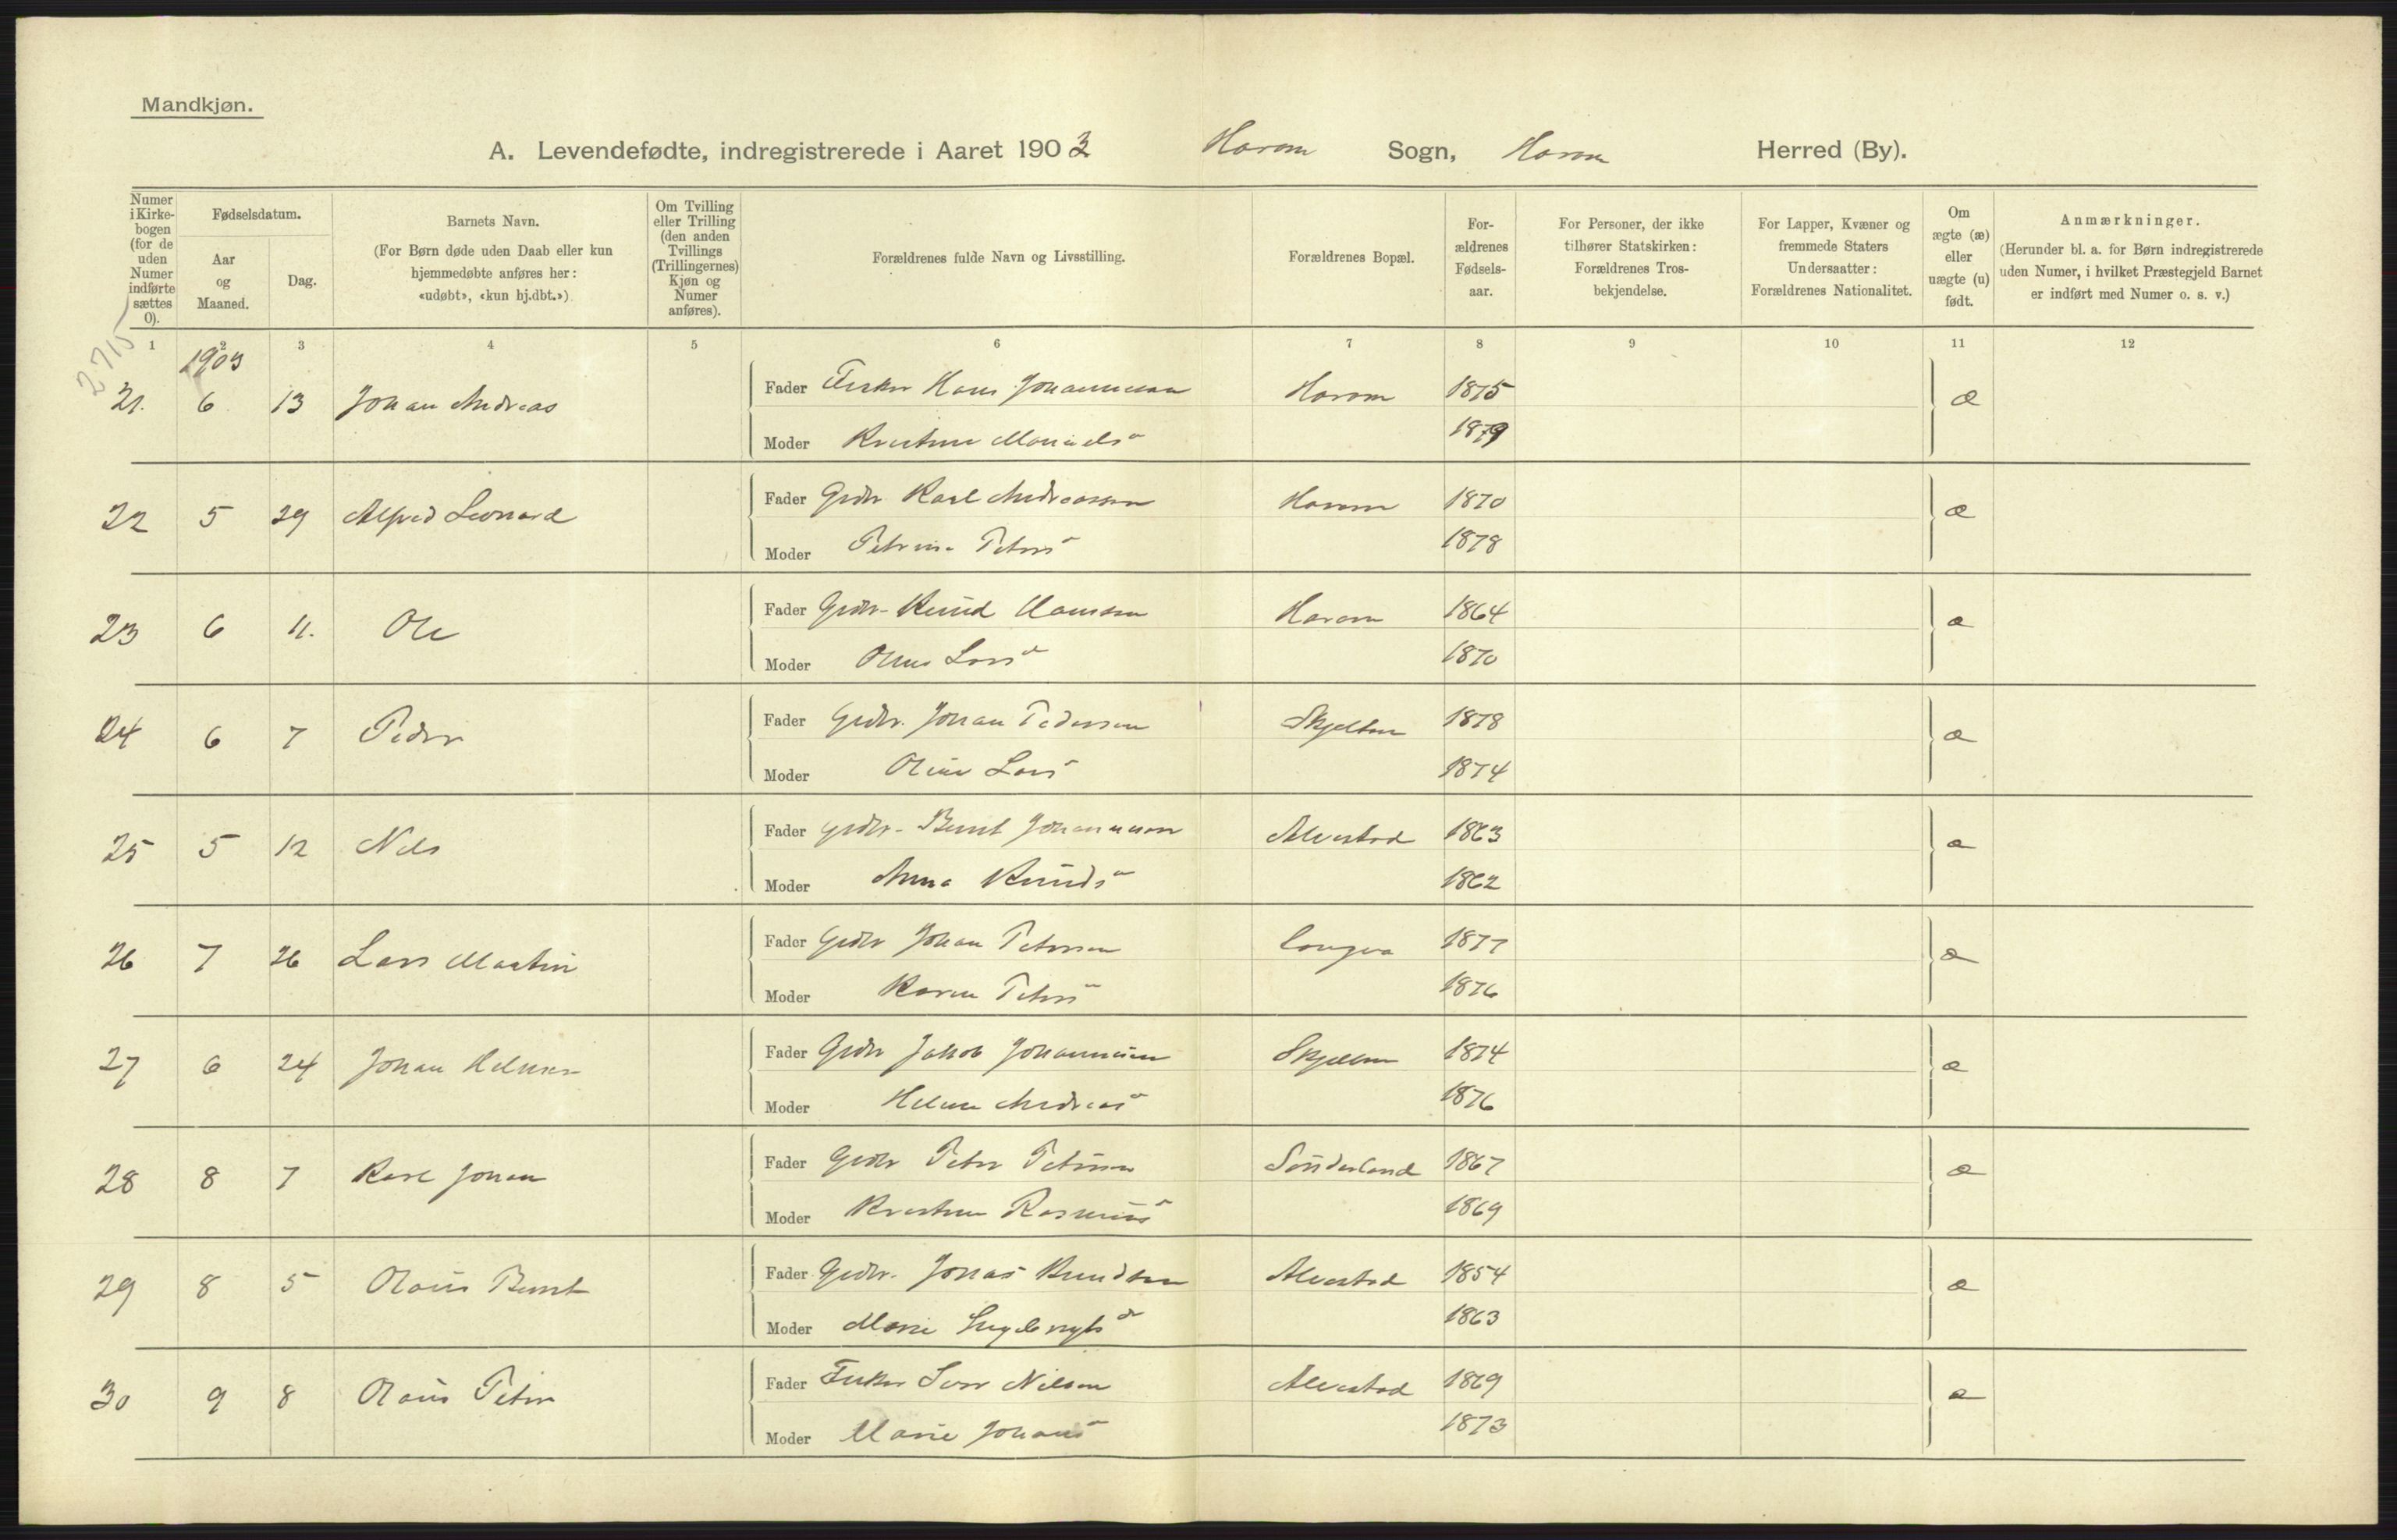 Mandkjøn.
A. Levendefødte, indregistrerede i Aaret 1903 Harom Sogn, Harom Herred (By).
Numer i Kirkebogen (for de uden Numer indførte sættes 0).
Fødselsdatum.
Aar og Maaned.
Dag.
Barnets Navn.
(For Børn døde uden Daab eller kun hjemmedøbte anføres her: «udøbt», «kun hj.dbt.»)
Om Tvilling eller Trilling (den anden Tvillings (Trillingernes) Kjøn og Numer anføres).
Forældrenes fulde Navn og Livsstilling.
Forældrenes Bopæl.
Forældrenes Fødselsaar.
For Personer, der ikke tilhører Statskirken: Forældrenes Trosbekjendelse.
For Lapper, Kvæner og fremmede Staters Undersaatter: Forældrenes Nationalitet.
Om ægte (æ) eller uægte (u) født.
Anmærkninger.
(Herunder bl. a. for Børn indregistrerede uden Numer, i hvilket Præstegjeld Barnet er indført med Numer o. s. v.)
1 2 3 4 5 6 7 8 9 10 11 12
2715
1903
21. 6 13 Johan Andreas Fader Fisker Hans Johannessen Harom 1875 æ
Moder 1879
22 5 29 Alfred Leonard Fader Grdbr Karl Andreassen Harom 1870 æ
Moder Petrine Petersd 1878
23 6 11. Ole Fader Grdbr. Knud Hansen Harom 1864 æ
Moder Larsd 1870
24 6 7 Peder Fader Grdbr. Johan Pedersen Skjelten 1878 æ
Moder Oline Larsd 1874
25 5 12 Nils Fader Grdbr. Bernt Johannessen Alvestad 1863 æ
Moder Anna Knudsd 1862
26 7 26 Lars Martin Fader Grdbr Johan Petersen Longva 1877 æ
Moder Karen Petersd 1876
27 6 24 Johan Fader Grdbr Jakob Johannessen Skjelten 1874 æ
Moder Helene Andreasd 1876
28 8 7 Karl Johan Fader Grdbr Peter Petersen Sønderland 1867 æ
Moder Rasmusd 1869
29 8 5 Olaus Bernt Fader Grdbr. Jonas Knudsen Alvestad 1854 æ
Moder Marie Engebregtsd 1863
30 9 8 Olaus Peter Fader Fisker Nilsen Alvestad 1869 æ
Moder Marie Johansd 1873